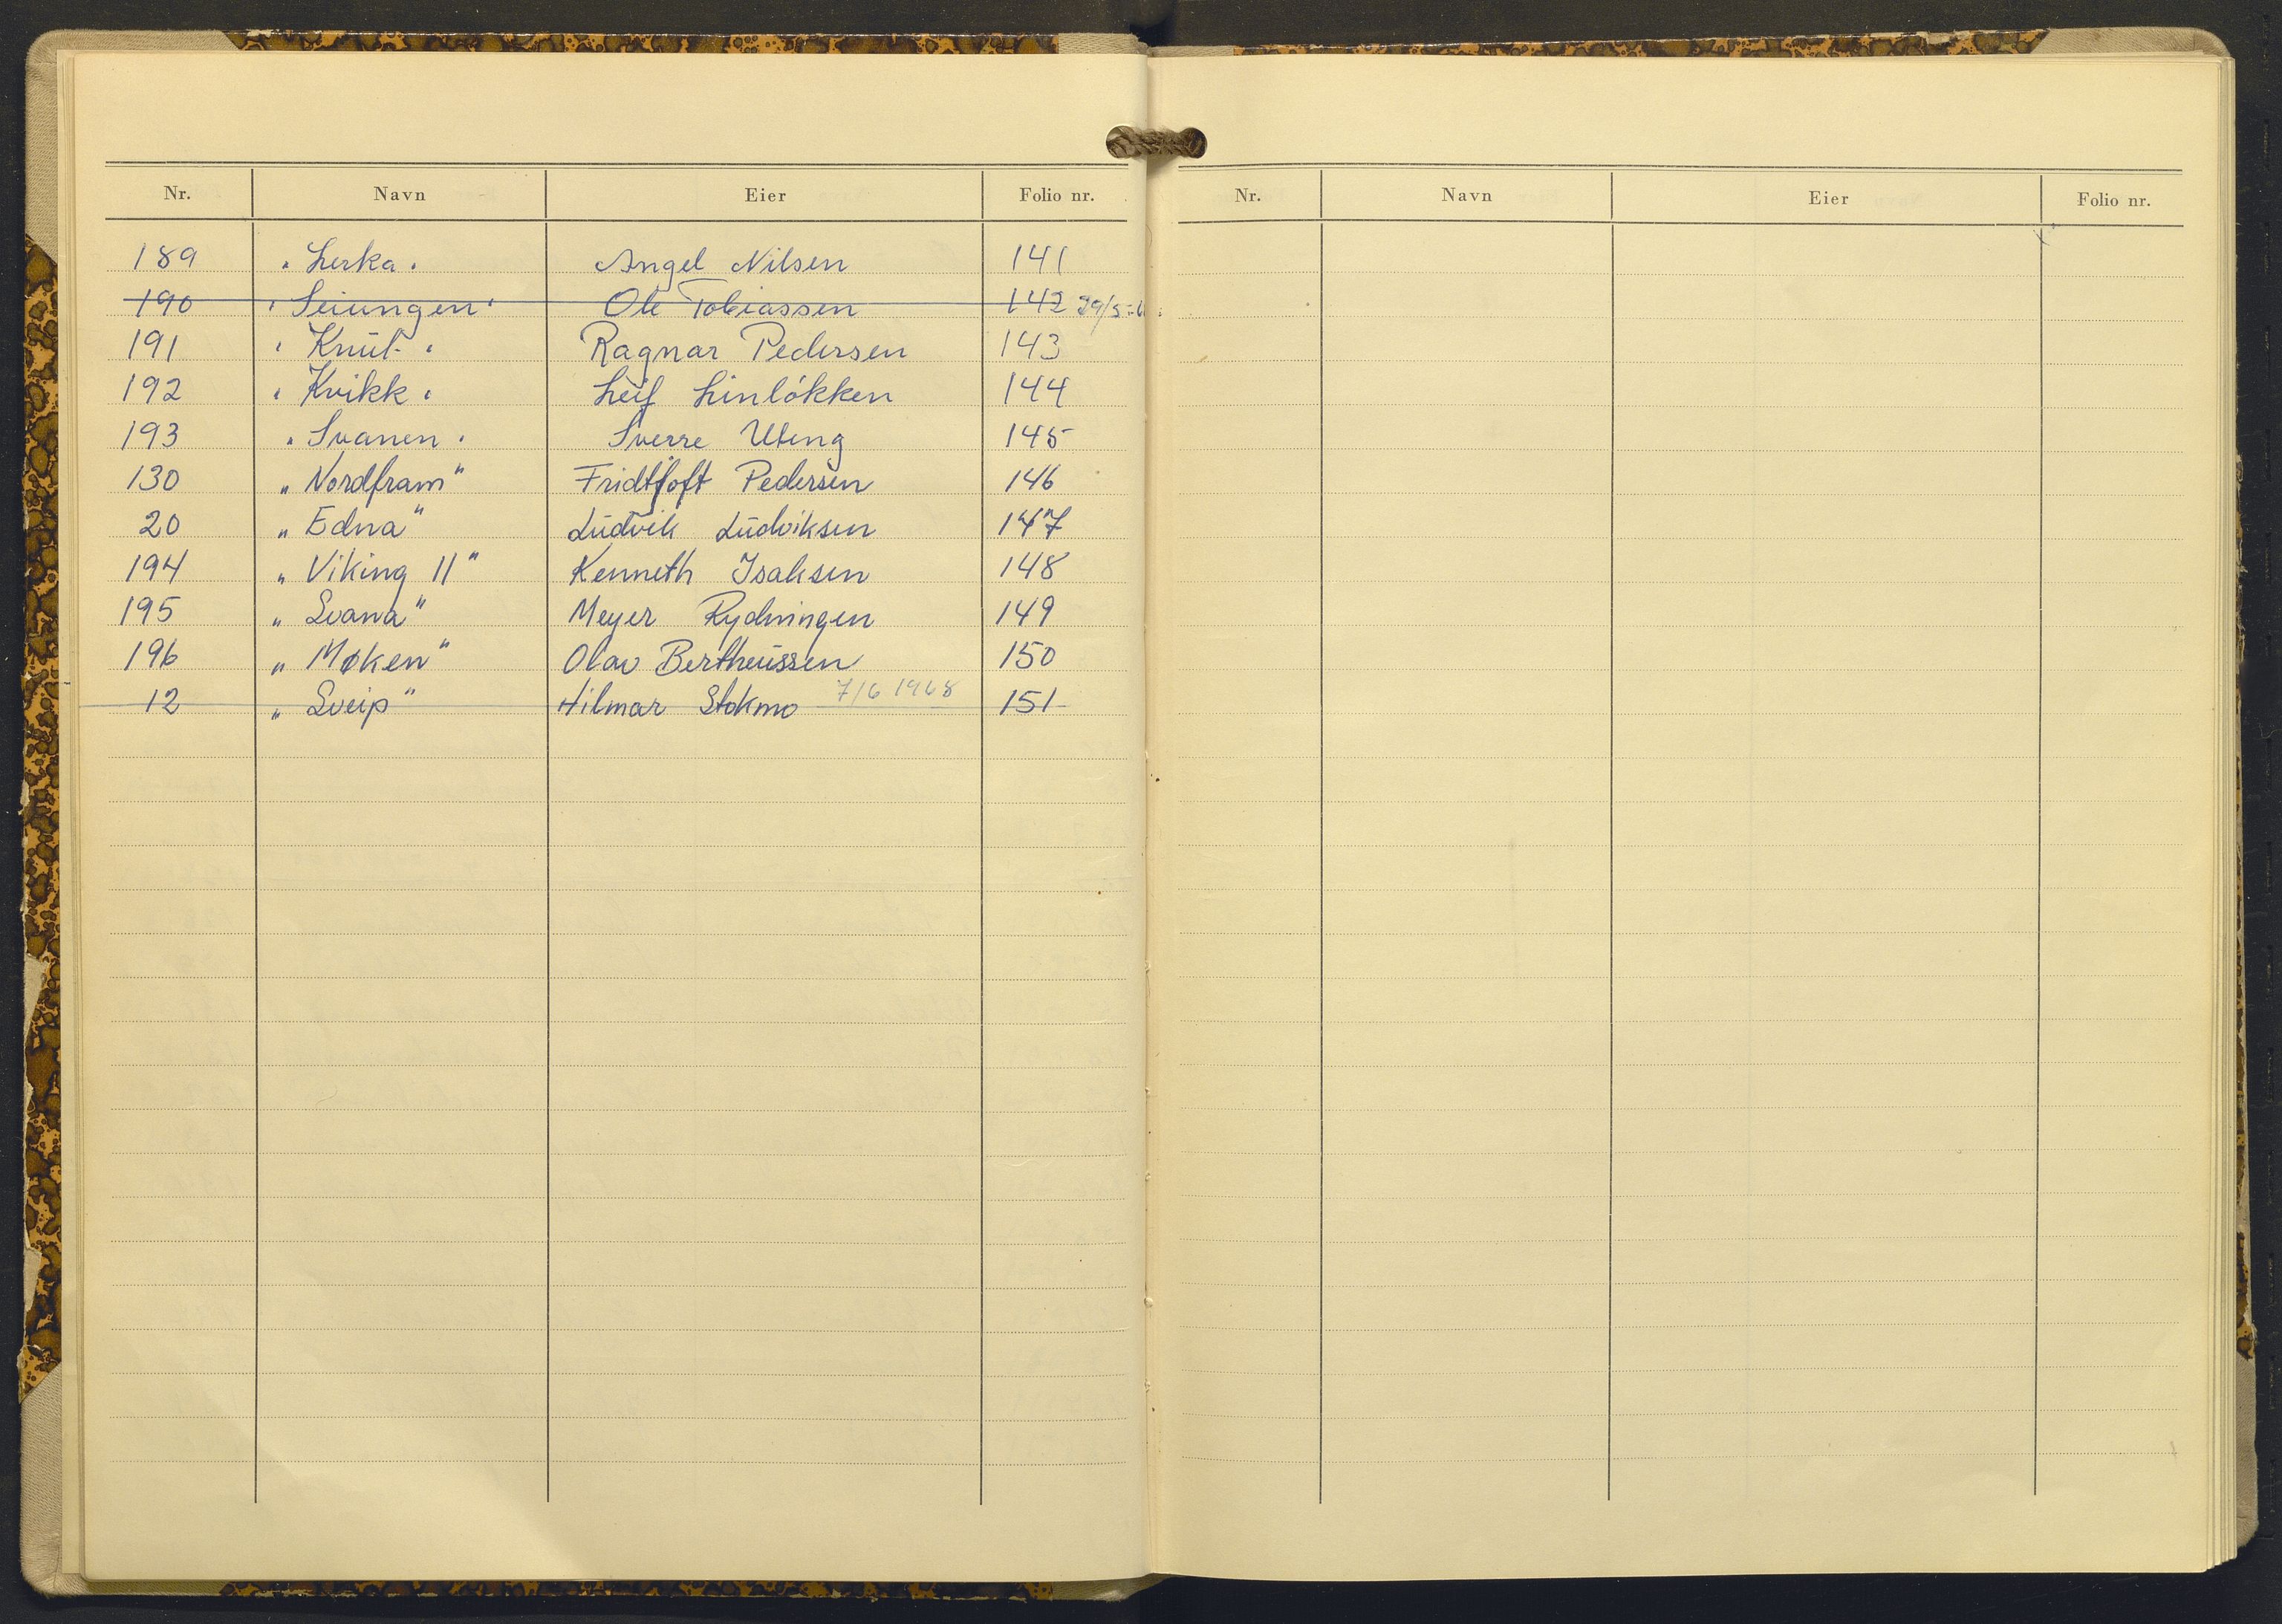 Nr. Navn Eier Folio nr.
189 "Lerka" Angel Nilsen 141
190 "Seiungen" Ole Tobiassen 142 29/5-6
191 "Knut" Ragnar Pedersen 143
192 "Kvikk" Leif Linløkken 144
193 "Svanen" Sverre Uteng 145
130 "Nordfram" Fridtjoft Pedersen 146
20 "Edna" Ludvik Ludviksen 147
194 "Viking II" Kenneth Isaksen 148
195 "Svana" Meyer Rydningen 149
196 "Måken" Olav Bertheussen 150
12 "Sveip" Hilmar Stokmo 7/6 1968 151
Nr. Navn Eier Folio nr.